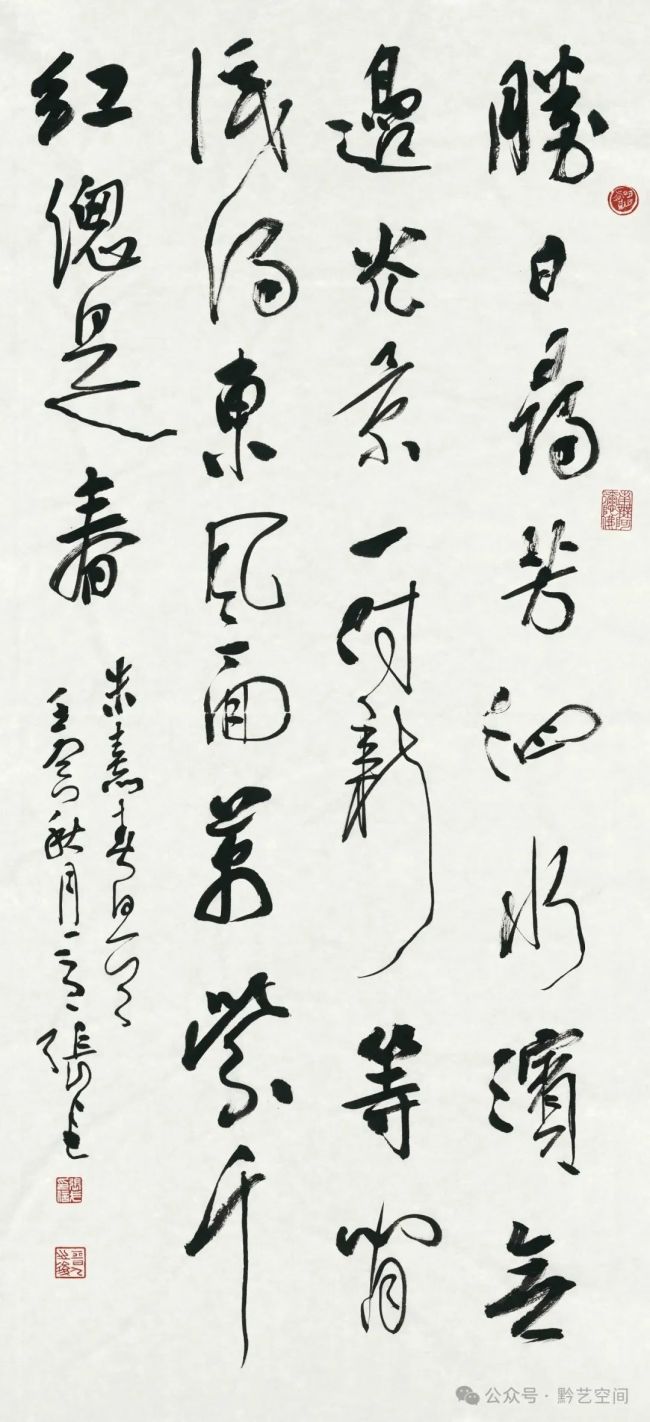 勝日尋芳泗水濱無
邊光景一時新等閒
識得東風面萬紫千
紅總是春
朱熹春日
壬寅秋月張
公众号 · 黔艺空间